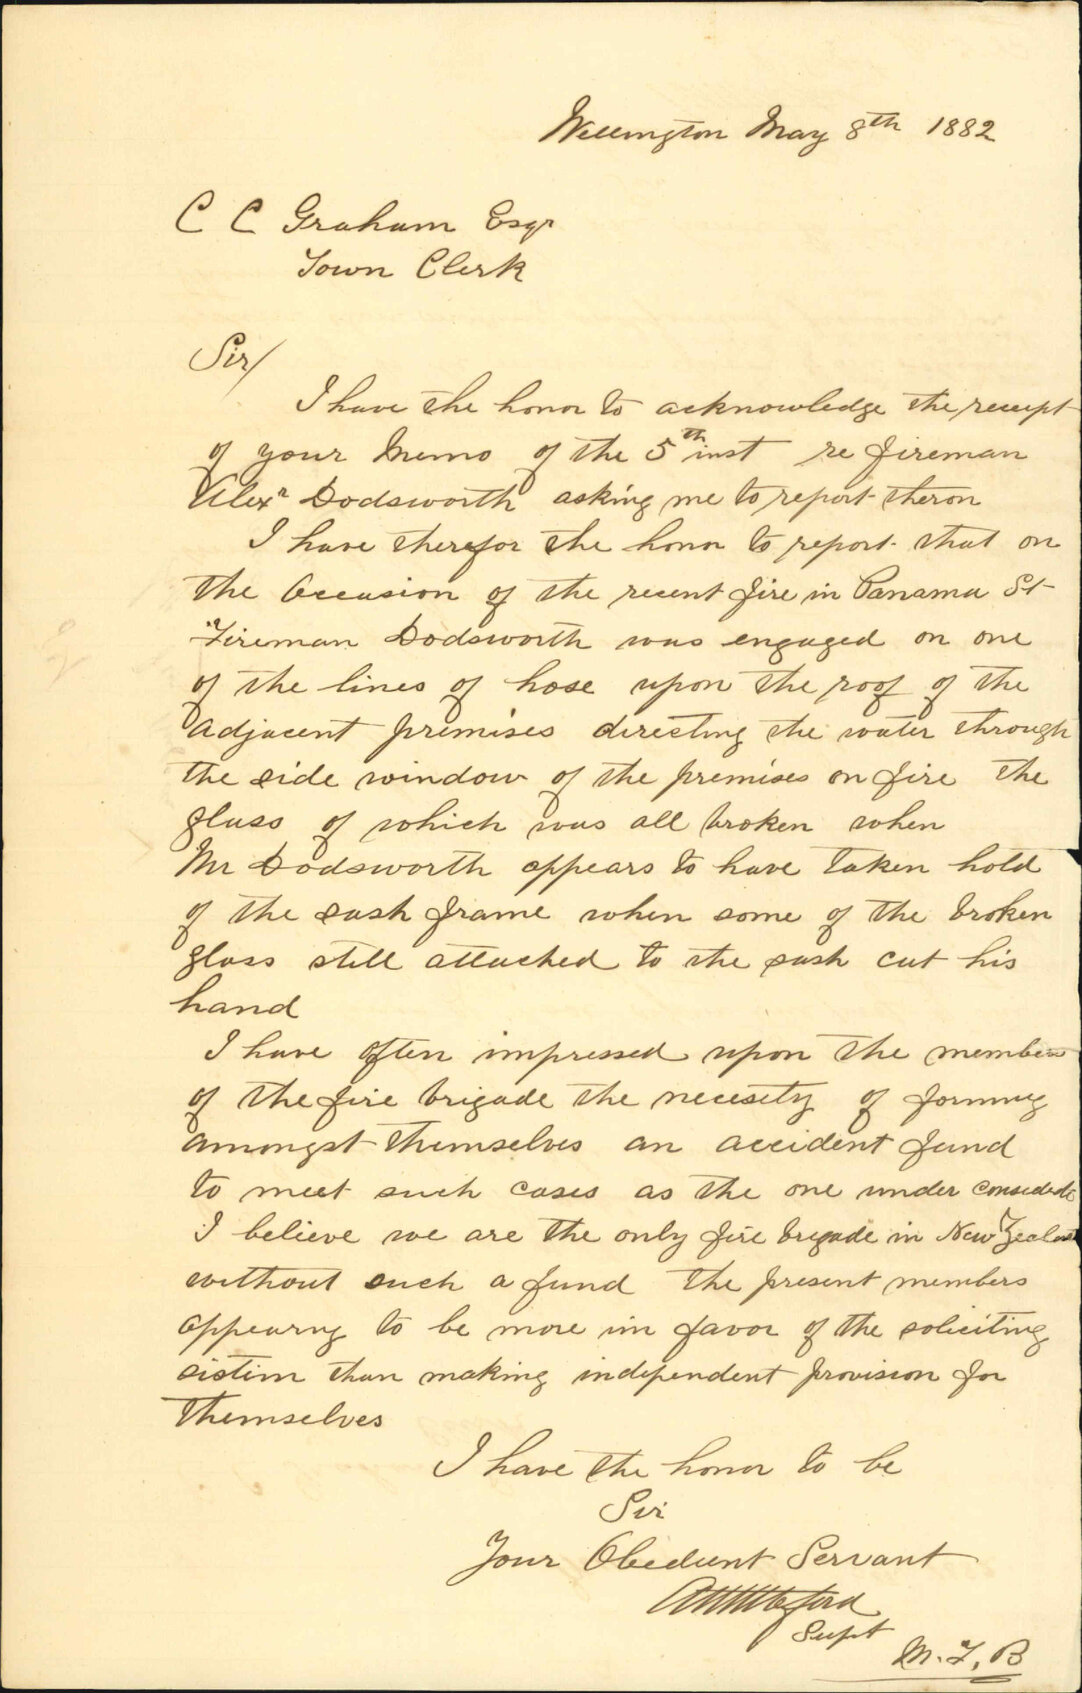 Wellington May 8th 1882
C C Graham Esqr
Town Clerk
Sir/
I have the honor to acknowledge the receipt
of your Memo of the 5th inst re fireman
Alexr Dodsworth asking me to report theron
I have therefor the honor to report that on
the Occasion of the recent fire in Panama St
Fireman Dodsworth was engaged on one
of the lines of hose upon the roof of the
adjacent premises directing the water through
the side window of the premises on fire the
glass of which was all broken when
Mr Dodsworth appears to have taken hold
of the sash frame when some of the broken
glass still attached to the sash cut his
hand
I have often impressed upon the members
of the fire brigade the necesity of forming
amongst themselves an accident fund
to meet such cases as the one under
I believe we are the only fire brigade in New Zealand
without such a fund the present members
appearing to be more in favor of the soliciting
sistim than making independent provision for
themselves
I have the honor to be
Sir
Your Obedient Servant
Supt
M.F.B